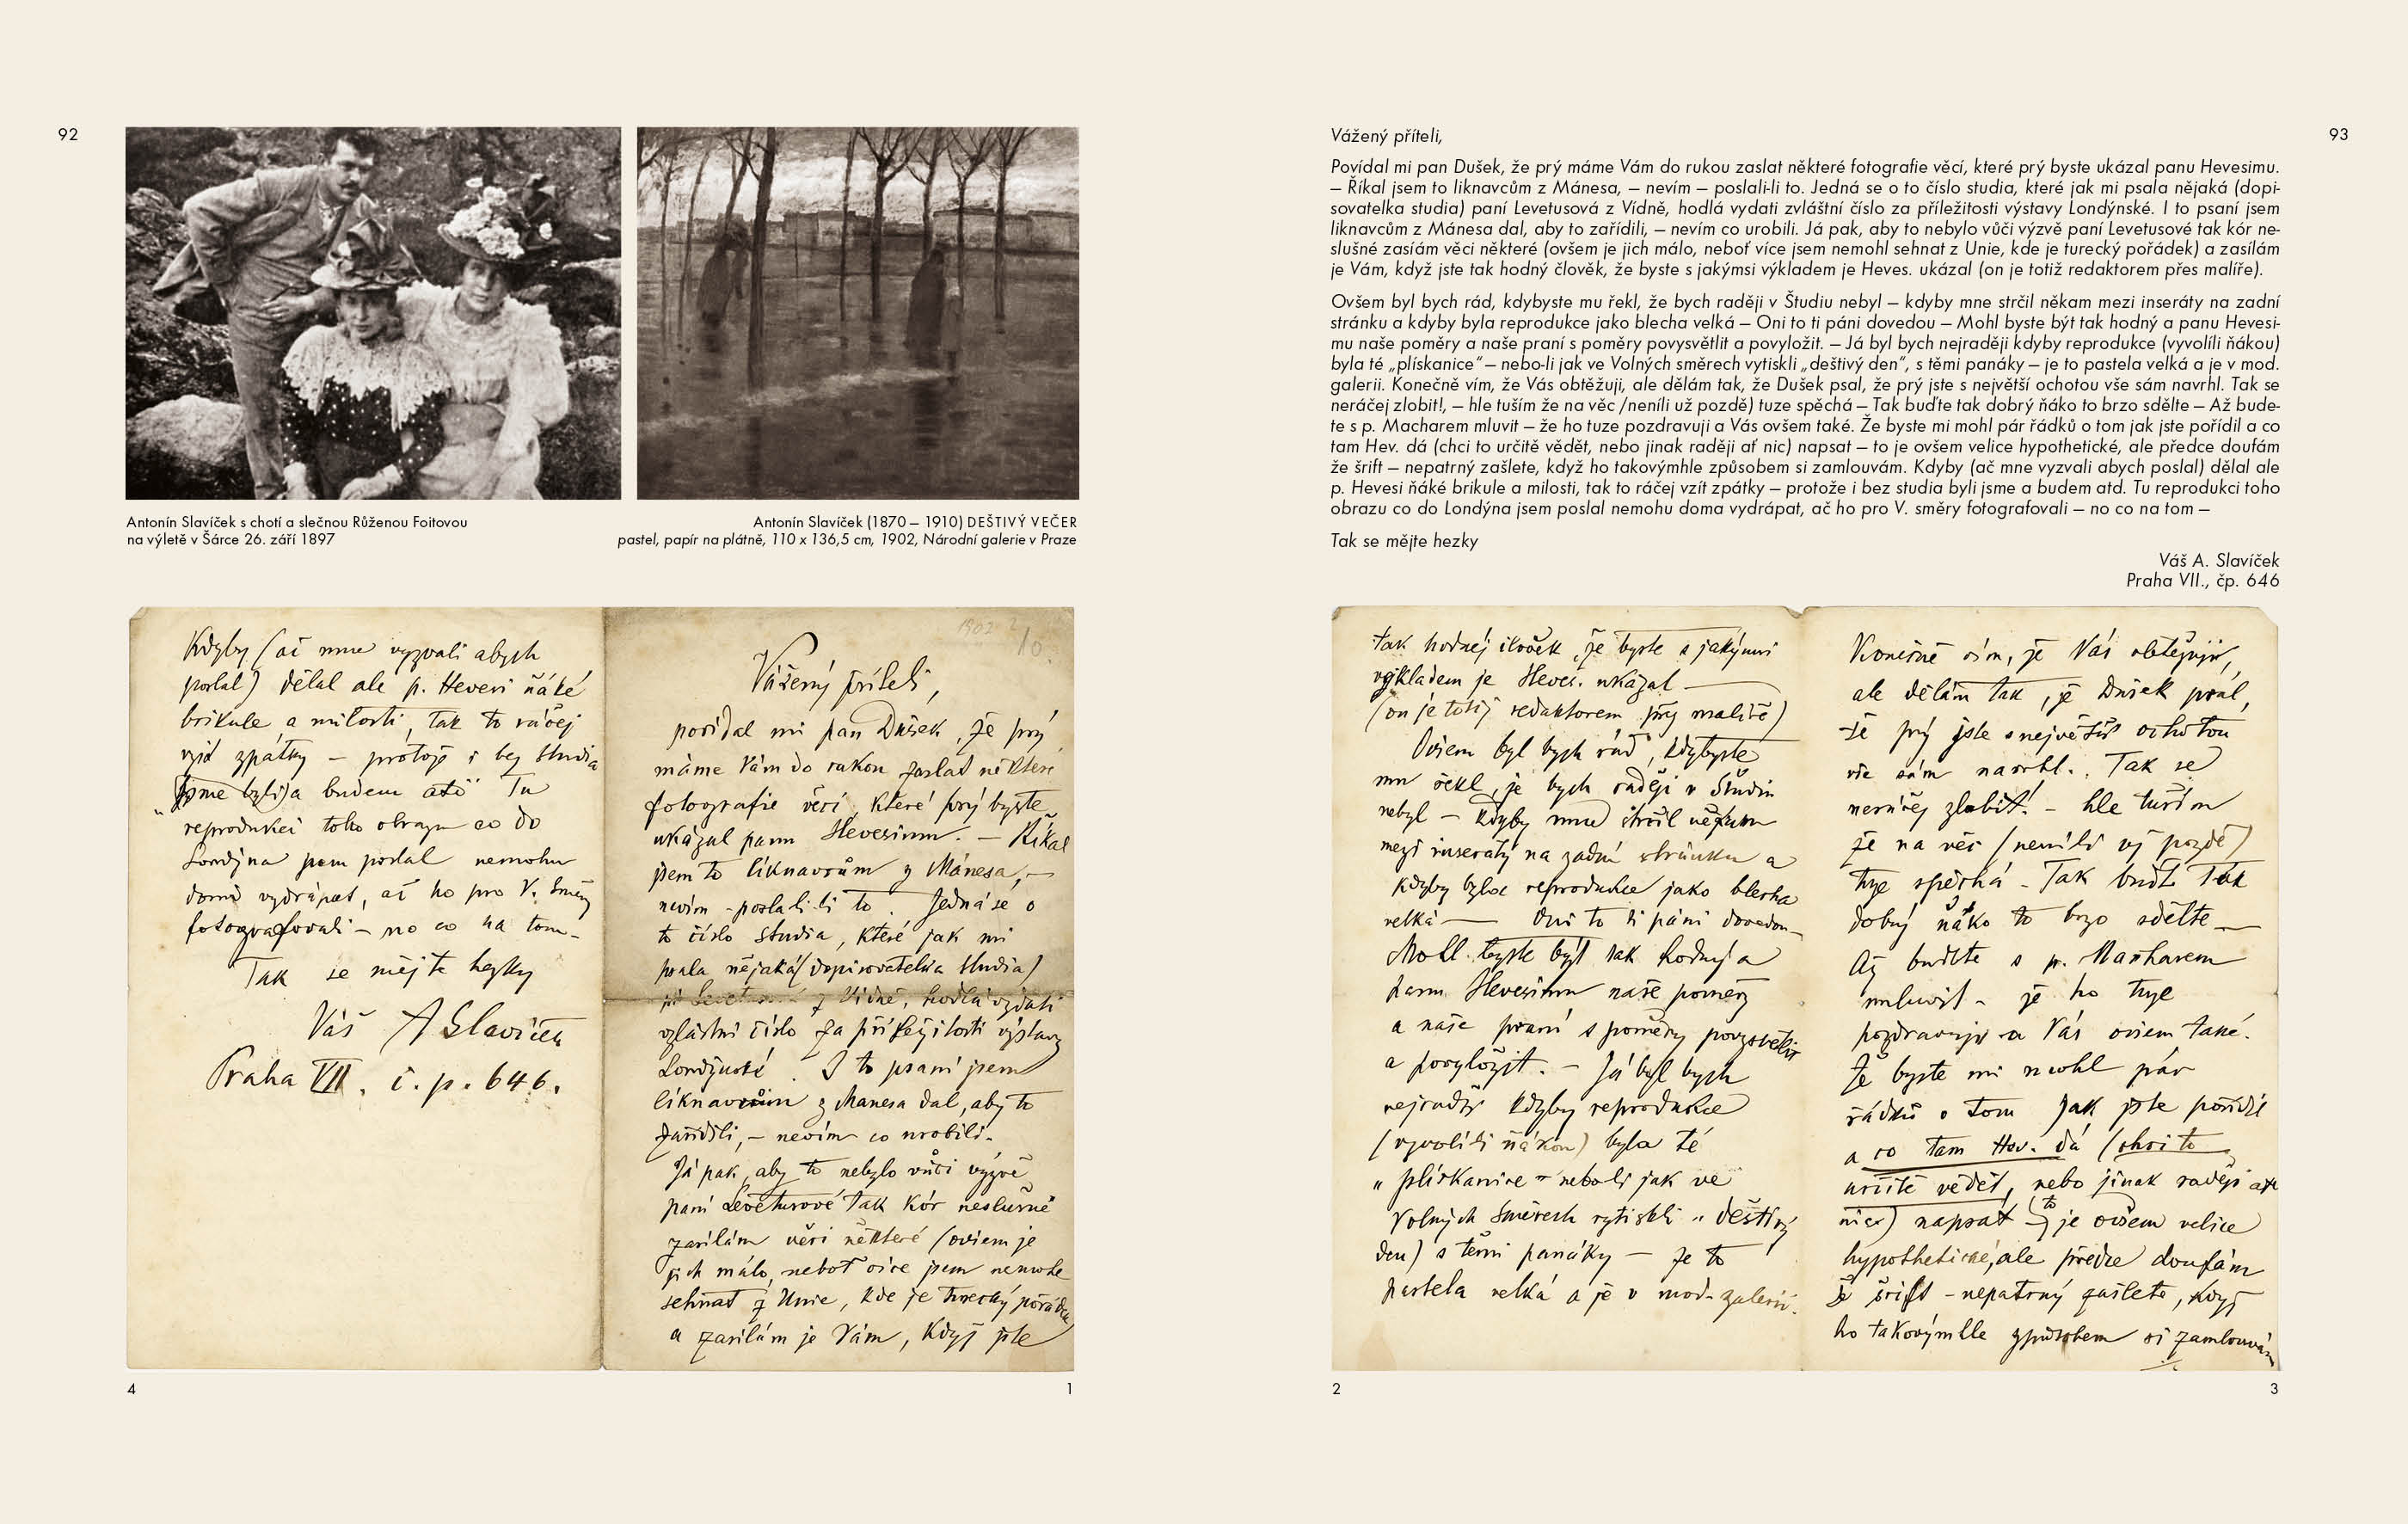 92
Antonín Slavíček s chotí a slečnou Růženou Foitovou
na výletě v Šárce 26. září 1897
Antonín Slavíček (1870 – 1910) DEŠTIVÝ VEČER
pastel, papír na plátně, 110 x 136,5 cm, 1902, Národní galerie v Praze
Kdyby (ač mne vyzvali abych
poslal) dělal ale p. Hevesi ňáké
brikule a milosti, tak to ráčej
vzít zpátky – protože i bez studia
jsme byli a budem atd Tu
reprodukci toho obrazu co do
Londýna jsem poslal nemohu
doma vydrápat, ač ho pro V. Směry
fotografovali – no co na tom –
Tak se mějte hezky
Váš A Slavíček
Praha VII. č. p. 646.
4
1902
10
Vážený příteli,
povídal mi pan Dušek, že prý
máme Vám do rukou zaslat některé
fotografie věcí, které prý byste
ukázal panu Hevesimu. – Říkal
jsem to liknavcům z Mánesa, –
nevím – poslali-li to. Jedná se o
to číslo studia, které jak mi
psala nějaká (dopisovatelka studia)
pí Levetusová z Vídně, hodlá vydati
zvláštní číslo za příležitosti výstavy
Londýnské. I to psaní jsem
liknavcům z Manesa dal, aby to
zařídili, – nevím co urobili.
Já pak, aby to nebylo vůči výzvě
paní Levetusové tak kór neslušné
zasílám věci některé (ovšem je
jich málo, neboť více jsem nemohl
sehnat z Unie, kde je turecký pořádek
a zasílám je Vám, když jste
1
93
Vážený příteli,
Povídal mi pan Dušek, že prý máme Vám do rukou zaslat některé fotografie věcí, které prý byste ukázal panu Hevesimu.
– Říkal jsem to liknavcům z Mánesa, – nevím – poslali-li to. Jedná se o to číslo studia, které jak mi psala nějaká (dopi-
sovatelka studia) paní Levetusová z Vídně, hodlá vydati zvláštní číslo za příležitosti výstavy Londýnské. I to psaní jsem
liknavcům z Mánesa dal, aby to zařídili, – nevím co urobili. Já pak, aby to nebylo vůči výzvě paní Levetusové tak kór ne-
slušné zasíám věci některé (ovšem je jich málo, neboť více jsem nemohl sehnat z Unie, kde je turecký pořádek) a zasílám
je Vám, když jste tak hodný člověk, že byste s jakýmsi výkladem je Heves. ukázal (on je totiž redaktorem přes malíře).
Ovšem byl bych rád, kdybyste mu řekl, že bych raději v Študiu nebyl – kdyby mne strčil někam mezi inseráty na zadní
stránku a kdyby byla reprodukce jako blecha velká – Oni to ti páni dovedou – Mohl byste být tak hodný a panu Hevesi-
mu naše poměry a naše praní s poměry povysvětlit a povyložit. – Já byl bych nejraději kdyby reprodukce (vyvolíli ňákou)
byla té „plískanice“ – nebo-li jak ve Volných směrech vytiskli „deštivý den“, s těmi panáky – je to pastela velká a je v mod.
galerii. Konečně vím, že Vás obtěžuji, ale dělám tak, že Dušek psal, že prý jste s největší ochotou vše sám navrhl. Tak se
neráčej zlobit!, – hle tuším že na věc /neníli už pozdě) tuze spěchá – Tak buďte tak dobrý ňáko to brzo sdělte – Až bude-
te s p. Macharem mluvit – že ho tuze pozdravuji a Vás ovšem také. Že byste mi mohl pár řádků o tom jak jste pořídil a co
tam Hev. dá (chci to určitě vědět, nebo jinak raději ať nic) napsat – to je ovšem velice hypothetické, ale předce doufám
že šrift – nepatrný zašlete, když ho takovýmhle způsobem si zamlouvám. Kdyby (ač mne vyzvali abych poslal) dělal ale
p. Hevesi ňáké brikule a milosti, tak to ráčej vzít zpátky – protože i bez studia byli jsme a budem atd. Tu reprodukci toho
obrazu co do Londýna jsem poslal nemohu doma vydrápat, ač ho pro V. směry fotografovali – no co na tom –
Tak se mějte hezky
Váš A. Slavíček
Praha VII., čp. 646
tak hodnej člověk, že byste s jakýmsi
výkladem je Heves. ukázal –
(on je totiž redaktorem přes malíře)
Ovšem byl bych rád, kdybyste
mu řekl, že bych raději v Študiu
nebyl – kdyby mne strčil někam
mezi inseráty na zadní stránku a
kdyby byla reprodukce jako blecha
velká – Oni to ti páni dovedou –
Mohl byste být tak hodný a
panu Hevesimu naše poměry
a naše praní s poměry povysvětlit
a povyložit. – Já byl bych
nejraději kdyby reprodukce
(vyvolíli ňákou) byla té
„plískanice – neboli jak ve
Volných Směrech vytiskli „deštivý
den) s těmi panáky – je to
pastela velká a je v mod. galerii.
2
Konečně vím, že Vás obtěžuji,
ale dělám tak, že Dušek psal,
že prý jste s největší ochotou
vše sám navrhl. Tak se
neráčej zlobit! – hle tuším
že na věc (neníli už pozdě)
tuze spěchá – Tak buďte tak
dobrý ňáko to brzo sdělte –
Až budete s p. Macharem
mluvit – že ho tuze
pozdravuji a Vás ovšem také.
Že byste mi mohl pár
řádků o tom jak jste pořídil
a co tam Hev. dá (chci to
určitě vědět, nebo jinak raději ať
nic) napsat – to je ovšem velice
hypothetické, ale předce doufám
že šrift – nepatrný zašlete, když
ho takovýmhle způsobem si zamlouvám
3